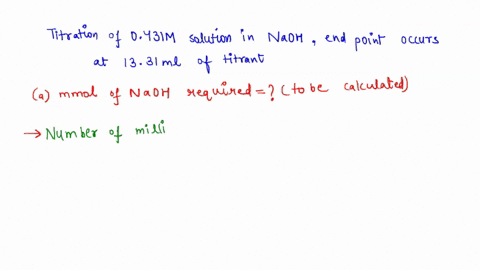 Titration of 0.431M solution in NaOH, end point occurs
at 13.31 ml of titrant
(a) mmol of NaOH required = ? (to be calculated)
→ Number of milli